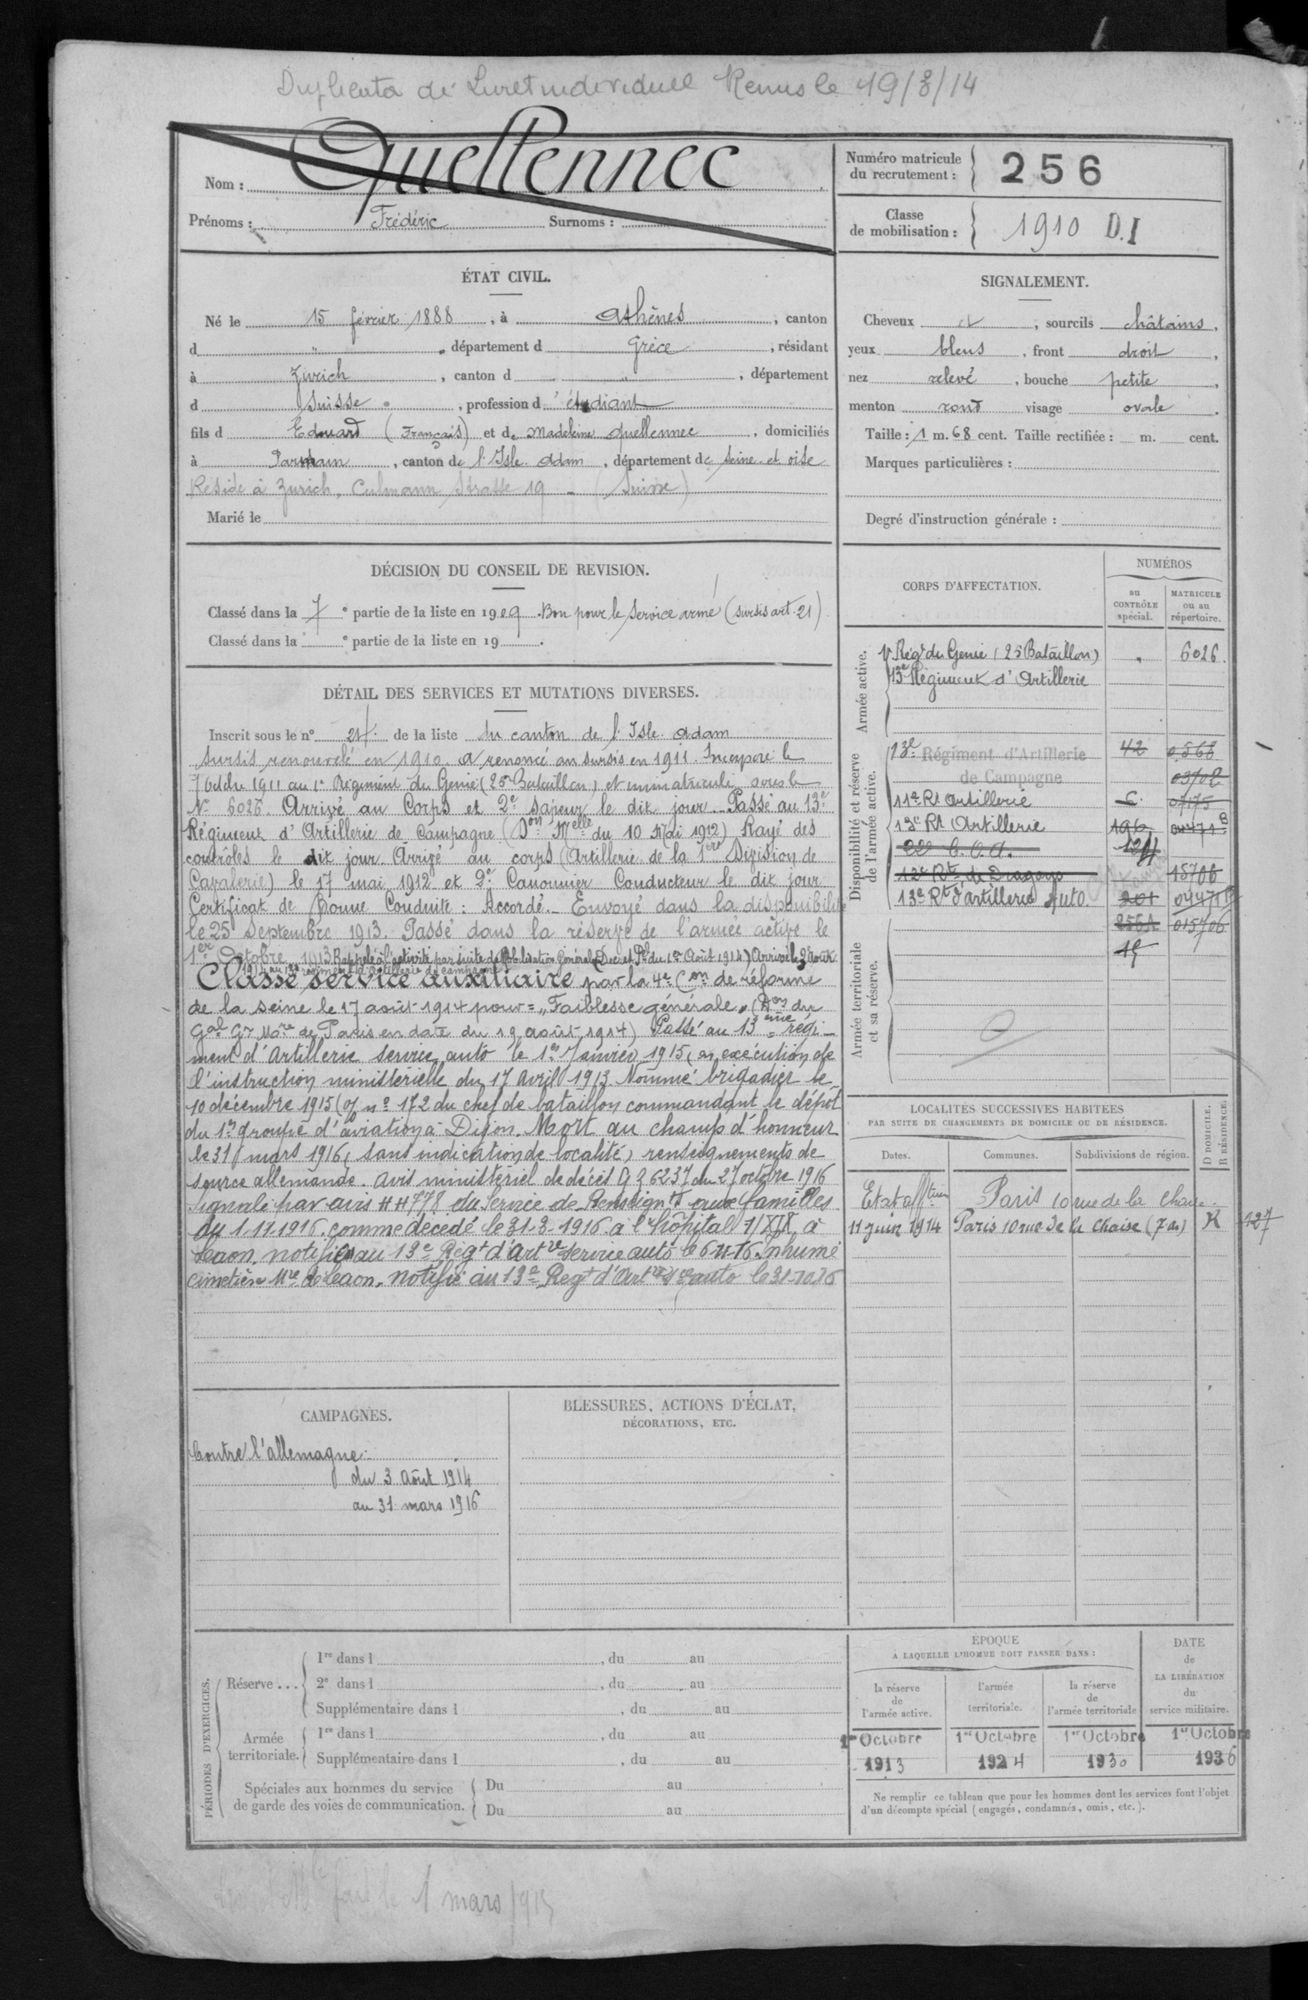 Duplicata de Livret individuel Remis le 19/3/14
Nom : Quellennec
Prénoms : Frédéric Surnoms :
Numéro matricule du recrutement : 256
Classe de mobilisation : 1910 D.I
ÉTAT CIVIL.
Né le 15 février 1888, à Athènes, canton
d " , département d Grèce, résidant
à Zurich, canton d " , département
d Suisse, profession d'étudiant
fils d Edouard (Français) et de Madeleine Quellennec, domiciliés
à Parmain, canton de l'Isle Adam, département de Seine et oise
Réside à Zurich, Culmann Strasse 19 - (Suisse)
Marié le
SIGNALEMENT.
Cheveux et, sourcils châtains,
yeux bleus, front droit,
nez relevé, bouche petite,
menton rond visage ovale.
Taille : 1 m. 68 cent. Taille rectifiée : m. cent.
Marques particulières :
Degré d'instruction générale :
DÉCISION DU CONSEIL DE REVISION.
Classé dans la 7e partie de la liste en 1909. Bon pour le Service armé (sursis art. 21)
Classé dans la e partie de la liste en 19 .
DÉTAIL DES SERVICES ET MUTATIONS DIVERSES.
Inscrit sous le n° 24 de la liste du canton de l'Isle Adam
Sursis renouvelé en 1910. A renoncé au sursis en 1911. Incorporé le
7 Octobre 1911 au 1er Régiment du Génie (25e Bataillon) et immatriculé sous le
N° 6026. Arrivé au Corps et 2e sapeur le dit jour. Passé au 13e
Régiment d'Artillerie de Campagne (Don Melle du 10 Mai 1912) Rayé des
contrôles le dit jour. Arrivé au corps (Artillerie de la 1ère Division de
Cavalerie) le 17 mai 1912 et 2e Canonnier Conducteur le dit jour.
Certificat de Bonne Conduite : Accordé. - Envoyé dans la disponibilité
le 25 Septembre 1913. Passé dans la réserve de l'armée active le
1er Octobre 1913. Rappelé à l'activité par suite de Mobilisation Générale (Décret Pel du 1er Août 1914) Arrivé le 3 août
1914 au 13e régiment d'artillerie de campagne
Classé service auxiliaire par la 4e Con de réforme
de la Seine le 17 août 1914 pour = "Faiblesse générale" (Don du
Gal Gr Mre de Paris en date du 19 août 1914) Passé au 13ème régi-
ment d'Artillerie service auto le 1er Janvier 1915 en exécution de
l'instruction ministérielle du 17 avril 1913. Nommé brigadier le
10 décembre 1915 (O/ n° 172 du chef de bataillon commandant le dépôt
du 1er groupe d'aviation à Dijon. Mort au champs d'honneur
le 31 mars 1916, (sans indication de localité) renseignements de
source allemande. avis ministériel de décès G 2 6237 du 27 octobre 1916
Signalé par avis HH 778 du Service de Renseignts aux familles
du 1.11.1916, comme décédé le 31-3-1916 à l'hôpital 7/XIX à
Leaon. notifié au 13e Regt d'artie service auto le 6-11-16. Inhumé
cimetière Mre de Leaon. Notifié au 13e Regt d'Artie Sce auto le 31-10-16
CORPS D'AFFECTATION.
NUMÉROS
au CONTRÔLE spécial.
MATRICULE ou au répertoire.
Armée active.
1er Régt du Génie (25 Bataillon) " 6026.
13e Régiment d'Artillerie
Disponibilité et réserve de l'armée active.
13e Régiment d'Artillerie de Campagne 42
03702
11e Rt Artillerie C.
13e Rt Artillerie 196
22 C.O.A. 124
12e Rt de Dragons 15706
13e Rt d'artillerie Auto. 201
015706
15
Armée territoriale et sa réserve.
LOCALITÉS SUCCESSIVES HABITÉES
PAR SUITE DE CHANGEMENTS DE DOMICILE OU DE RÉSIDENCE.
Dates. Communes. Subdivisions de région. D DOMICILE. R RÉSIDENCE.
Paris 10 rue de la Chaise.
11 Juin 1914 Paris 10 rue de la Chaise (7e) R 127
CAMPAGNES.
Contre l'allemagne :
du 3 Août 1914
au 31 mars 1916
BLESSURES, ACTIONS D'ÉCLAT,
DÉCORATIONS, ETC.
PÉRIODES D'EXERCICES.
Réserve... 1re dans l , du au
2e dans l , du au
Supplémentaire dans l , du au
Armée territoriale. 1re dans l , du au
Supplémentaire dans l , du au
Spéciales aux hommes du service de garde des voies de communication. Du au
Du au
ÉPOQUE
À LAQUELLE L'HOMME DOIT PASSER DANS :
la réserve de l'armée active.
l'armée territoriale.
la réserve de l'armée territoriale
DATE de LA LIBÉRATION du service militaire.
1er Octobre 1913
1er Octobre 1924
1er Octobre 1930
1er Octobre 1936
Ne remplir ce tableau que pour les hommes dont les services font l'objet
d'un décompte spécial (engagés, condamnés, omis, etc.).
fait le 1 mars 1915